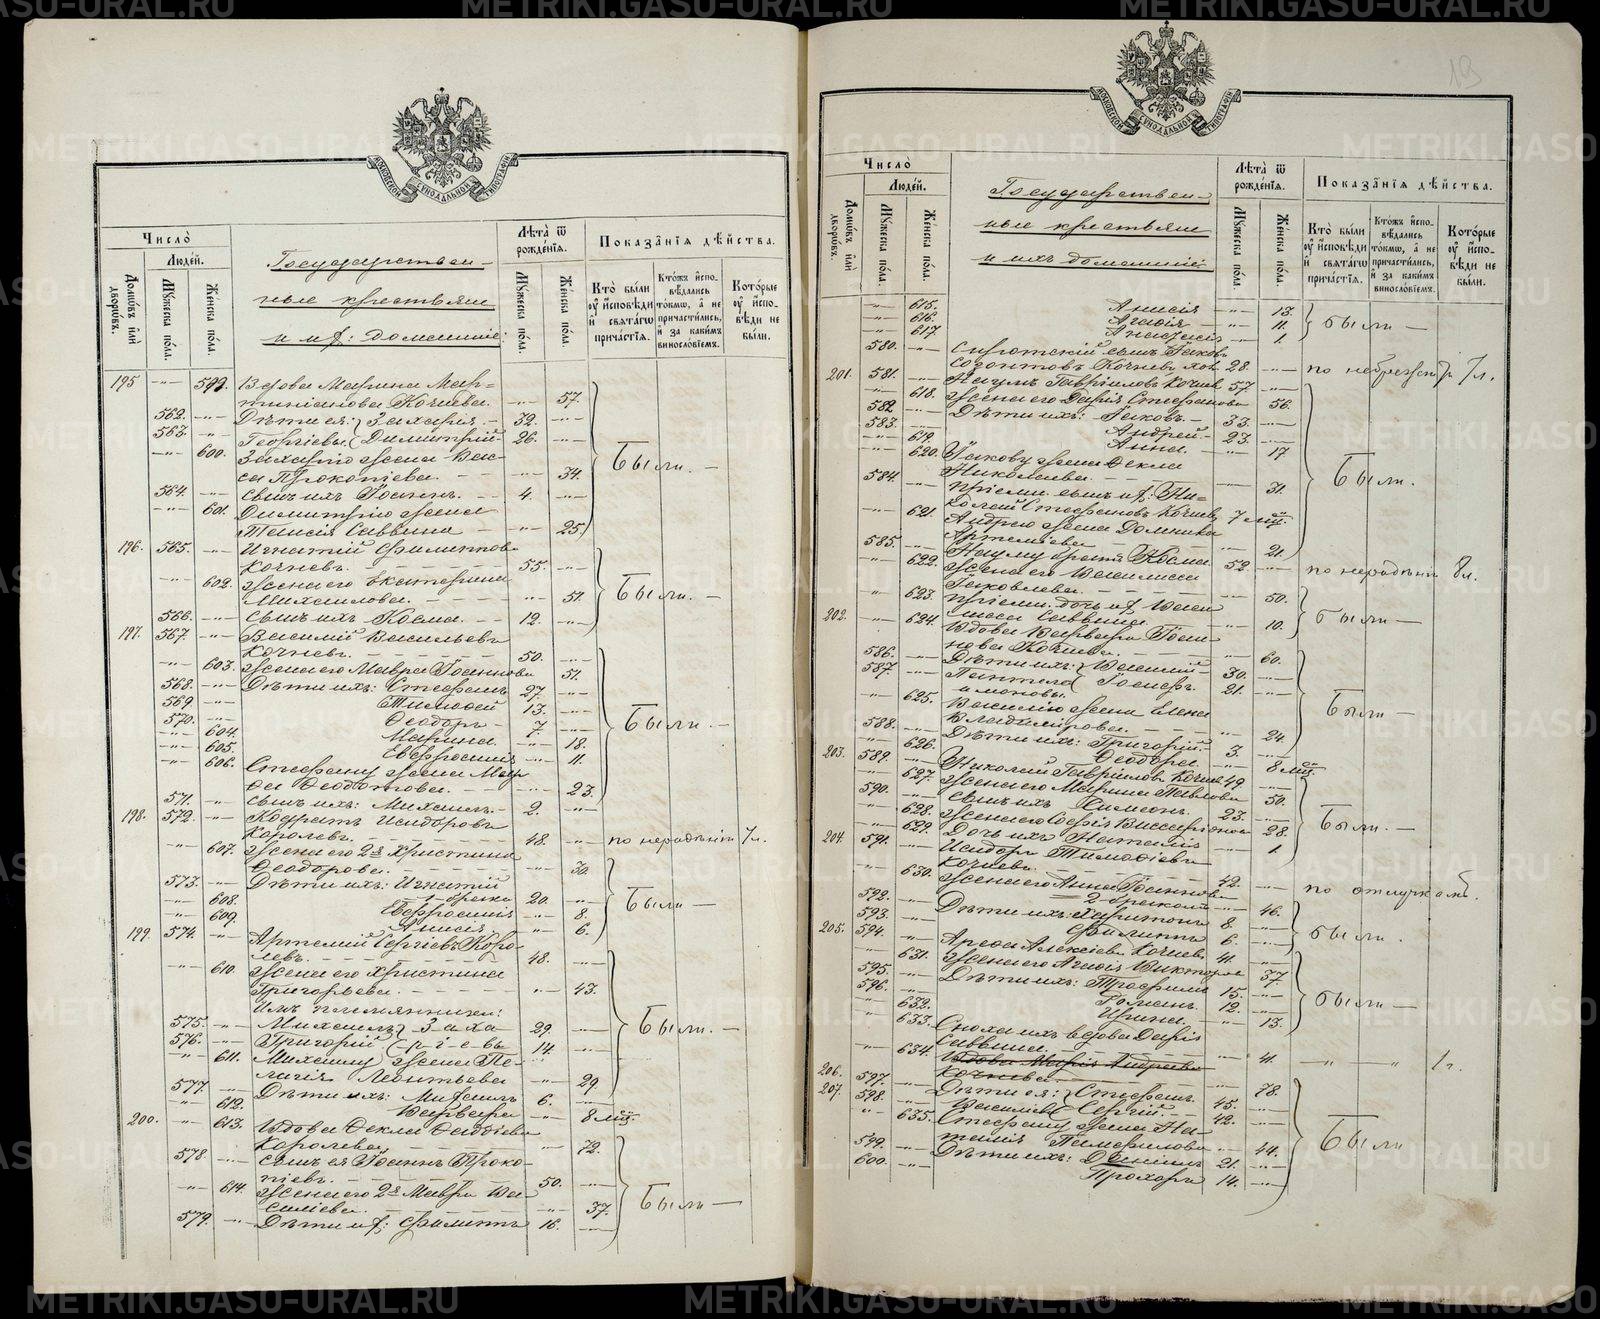 METRIKI.GASO-URAL.RU
13
МОСКОВСКОЙ СѴНОДАЛЬНОЙ ТИПОГРАФІИ
Число̀
Людей.
Домѡвъ или дворѡвъ.
Мꙋжеска пола.
Женска пола.
Государствен-
ные крестьяне
и их: домашніе:
Лѣта ѿ рожденїѧ.
Мꙋжеска пола.
Женска пола.
Показанїѧ дѣйства.
Кто были ᲂу исповѣди и свѧтагѡ причастїѧ.
Ктожъ исповѣдались токмѡ, а не причастились, и за какимъ винословїемъ.
Которые ᲂу исповѣди не были.
195 599. Вдова Марина Мар-
тиніанова Кочнева. 57.
562. Дѣти ея: Захарія 32.
563. Георгіевы Димитрій 26.
600. Захарію жена Вас-
са Прокопіева. 34. Были.
564. сынъ ихъ Іоаннъ. 4.
601. Димитрію жена
Таисія Саввина 25
196. 565. Игнатій Филиппов
Кочневъ. 55.
602. жена его Екатерина
Михаилова. 51. Были.
566. сынъ ихъ Косма. 12.
197. 567. Василій Васильевъ
Кочневъ. 50.
603. жена его Мавра Іоаннова 51.
568. Дѣти ихъ: Стефанъ 27.
569. Тимофей 13.
570. Ѳеодоръ 7. Были.
604. Марина. 18.
605. Евфросинія 11.
606. Стефану жена Мар
Ѳеодотова. 23.
571. сынъ ихъ: Михаилъ. 2.
198. 572. Кодратъ Исидоровъ
Королевъ. 48. по нерадѣнію 7 л.
607. жена его 2я Христина
Ѳеодорова. 30.
573. Дѣти ихъ: Игнатій
1 брака 20. Были
608. Евфросинія 8.
609. Анисія 6.
199. 574. Артемій Сергіевъ Коро-
левъ. 48.
610. жена его Христина
Григорьева. 43.
Ихъ племянники:
575. Михаилъ Заха 29. Были.
576. Григорій ріевы 14.
611. Михаилу жена Пе-
лагія Леонтьева 29.
577. Дѣти ихъ: Михаилъ 6.
612. Варвара 8 мѣс.
200. 613. Вдова Ѳекла Ѳаддіева
Королева 72.
578. сынъ ея Іоаннъ Проко-
піевъ. 50.
614. жена его 2я Мавра Ва
силіева. 37. Были
579. Дѣти их: Филиппъ 16.
Число̀
Людей.
Домѡвъ или дворѡвъ.
Мꙋжеска пола.
Женска пола.
Государствен-
ные крестьяне
и ихъ домашніе:
Лѣта ѿ рожденїѧ.
Мꙋжеска пола.
Женска пола.
Показанїѧ дѣйства.
Кто были ᲂу исповѣди и свѧтагѡ причастїѧ.
Ктожъ исповѣдались токмѡ, а не причастились, и за какимъ винословїемъ.
Которые ᲂу исповѣди не были.
615. Анисія 13.
616. Агафія 11. были
617. Анастасія 1.
580. Сиротскій сынъ Іаковъ
Созонтовъ Кочневъ 28. по небреж. 7 л.
201. 581. Наумъ Гавріиловъ Кочнев 57.
618. жена его Дарія Стефанова 56.
582 Дѣти ихъ: Іаковъ 33.
583. Андрей 23.
619. Анна. 17
620. Іакову жена Ѳекла
Николаева. 31. Были.
584. пріемн. сынъ их: Ни-
колай Стефановъ Кочнев 7 мѣс.
621. Андрею жена Домника
Артеміева 21.
585. Науму братъ Косма 52. по нерадѣнію 8 л.
622. жена его Василисса
Іаковлева. 50.
623. пріемн. дочь их Васи
лисса Саввина 10. были
202. 624. Вдова Варвара Іоан
нова Кочнева. 60.
586. Дѣти ихъ: Василій 30.
587. Пантелеимоновы. Іосифъ. 21.
625. Василію жена Елена
Владимірова. 24. Были
588. Дѣти ихъ: Григорій. 3.
626. Ѳеодора. 8 мѣс.
203. 589. Николай Гавріиловъ Кочнев 49
627. жена его Марина Павлова 50.
590. сынъ ихъ Симеонъ. 23.
628. жена его Софія Виссаріонова 28. Были.
629. Дочь ихъ Наталія 1.
204. 591. Исидоръ Тимофіевъ
Кочневъ. 42. по отлучкамъ.
630. жена его Анна Іоаннова
2 бракомъ 46.
592. Дѣти ихъ: Харитонъ 8. были.
593. Филиппъ 6.
205. 594. Арефа Алексіевъ Кочневъ 41.
631. жена его Агафія Викторова 37.
595. Дѣти ихъ: Трофимъ 15.
596. Романъ 12. были
632. Ирина. 13.
633. Сноха ихъ вдова Дарія
Саввина. 41. 1 г.
206. 634. Вдова Марія Андреева
Кочнева. 78.
207. 597. Дѣти ея: Стефанъ 45.
598. Василіевы Сергій. 42.
635. Стефану жена На-
талія Памфилова 44. Были
599. Дѣти ихъ: Діонисій 21.
600. Прохоръ 14.